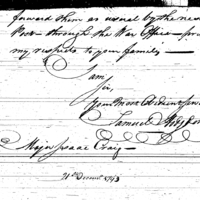 forward them as usual by the next
Post - through the War Office - pr
my respects to your family -
I am
Sir,
Your Most Obedient Serv
Samuel Hodgdon
Major Isaac Craig -
21st Decemr 1793